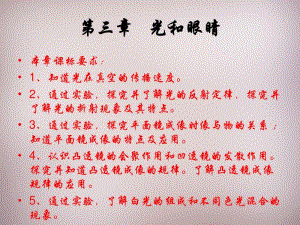 第三章 光和眼睛
• 本章课标要求：
• 1、知道光在真空的传播速度。
• 2、通过实验，探究并了解光的反射定律，探究并
了解光的折射现象及其特点。
• 3、通过实验，探究平面镜成像时像与物的关系；
知道平面镜成像的特点及应用。
• 4、认识凸透镜的会聚作用和凹透镜的发散作用。
探究并知道凸透镜成像的规律。了解凸透镜成像
规律的应用。
• 5、通过实验，了解白光的组成和不同色光混合的
现象。